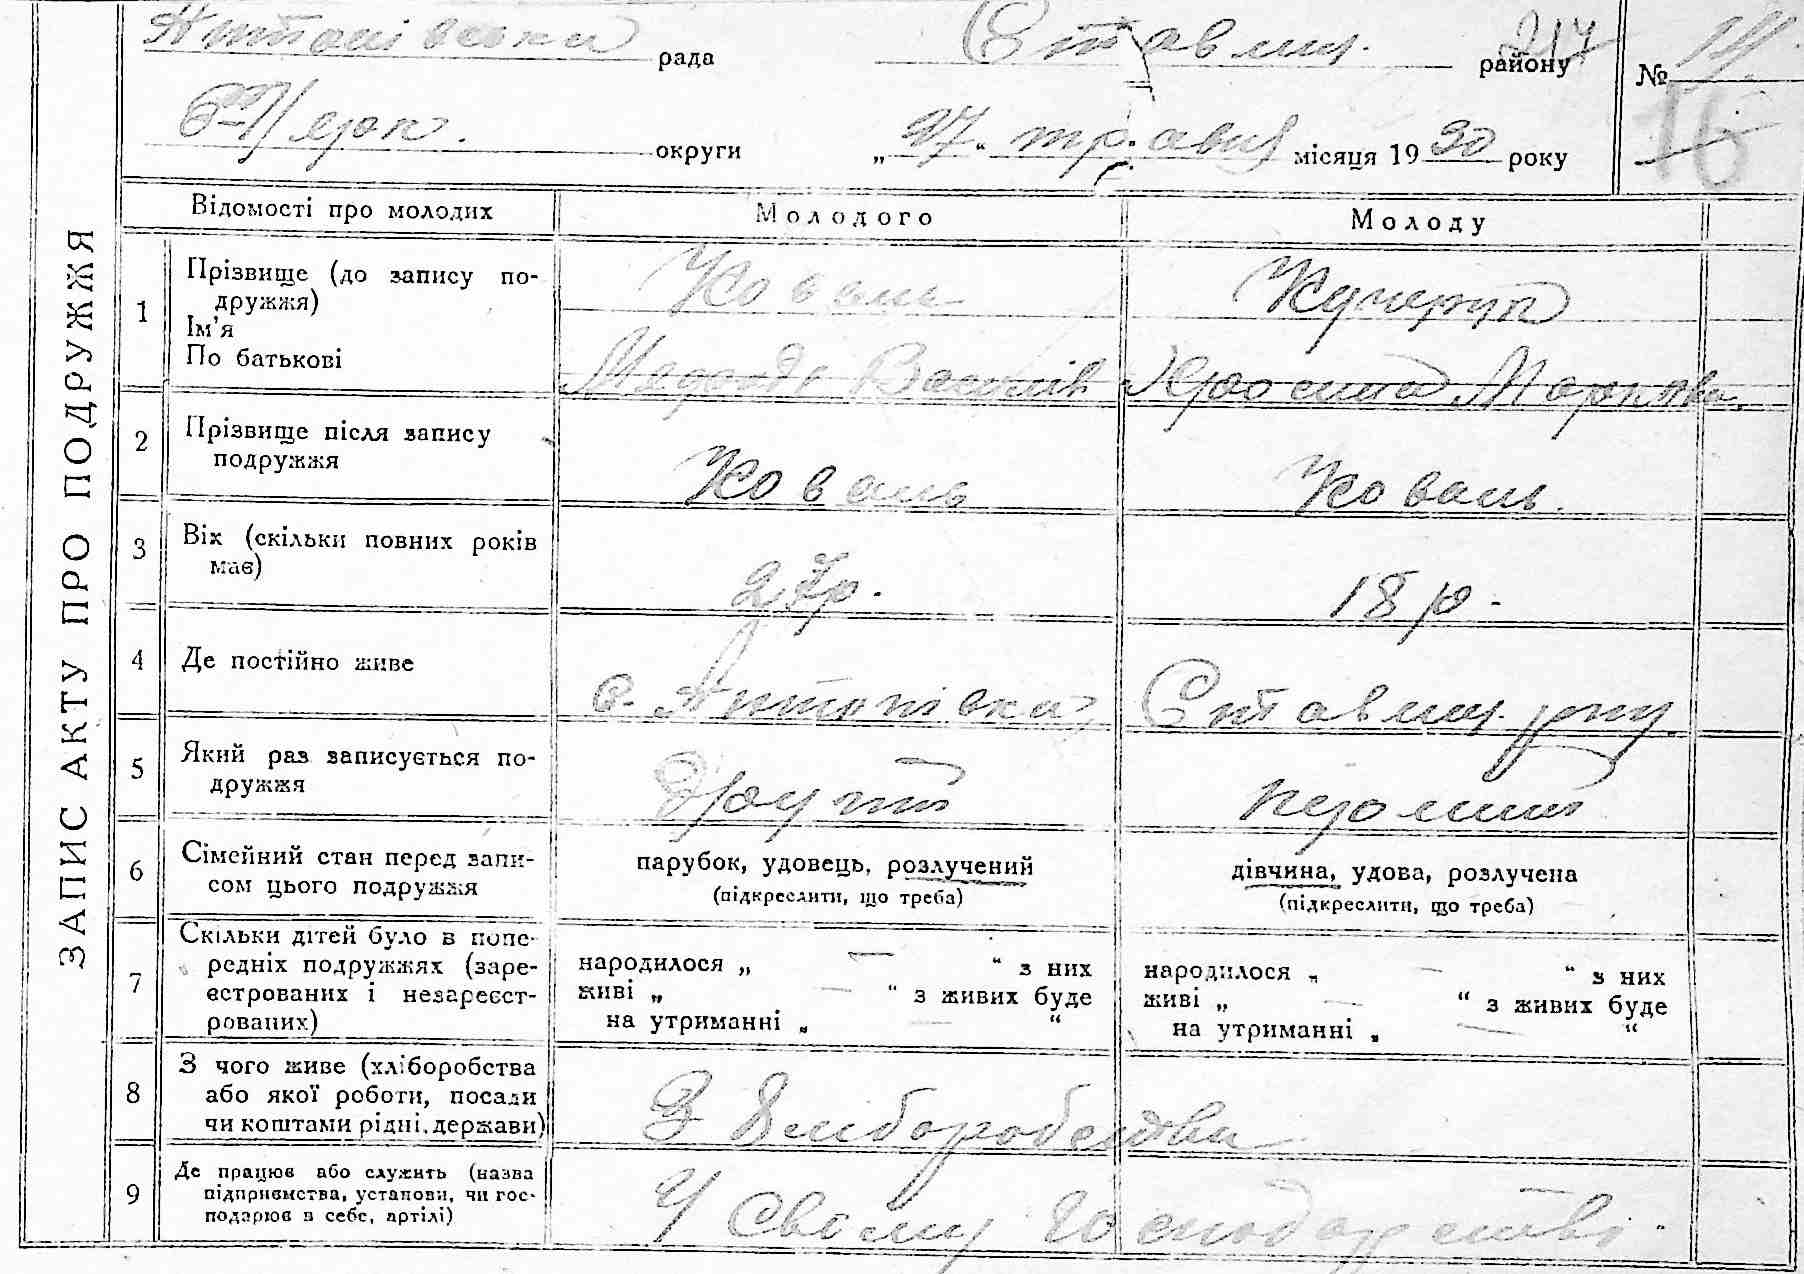 Антонівська рада Ставищ. району 217 № 14.
округи „27“ травня місяця 1930 року 16
ЗАПИС АКТУ ПРО ПОДРУЖЖЯ
Відомості про молодих Молодого Молоду
1 Прізвище (до запису по-
дружжя) Коваль Кучерук
Ім’я
По батькові Василів Марківна
2 Прізвище після запису
подружжя Коваль Коваль.
3 Вік (скільки повних років
має) 27р. 18 р.
4 Де постійно живе с. Антонівка, Ставищ. р-ну.
5 Який раз записується по-
дружжя другий перший
6 Сімейний стан перед запи-
сом цього подружжя
парубок, удовець, розлучений
(підкреслити, що треба)
дівчина, удова, розлучена
(підкреслити, що треба)
7 Скільки дітей було в попе-
редніх подружжях (заре-
єстрованих і незареєст-
рованих)
народилося „ — “ з них
живі „ — “ з живих буде
на утриманні „ — “
народилося „ — “ з них
живі „ — “ з живих буде
на утриманні „ — “
8 З чого живе (хліборобства
або якої роботи, посади
чи коштами рідні, держави)
З Хліборобства
9 Де працює або служить (назва
підприємства, установи, чи гос-
подарює в себе, артілі)
У своему господарстві.